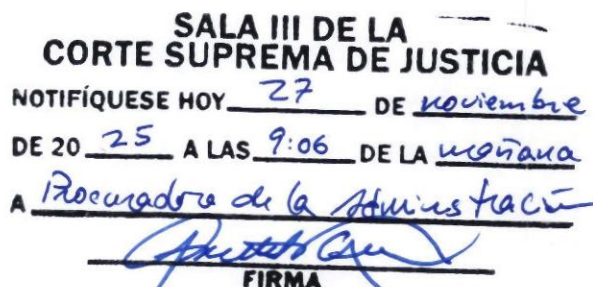 SALA III DE LA
CORTE SUPREMA DE JUSTICIA
NOTIFÍQUESE HOY 27 DE noviembre
DE 20 25 A LAS 9:06 DE LA mañana
A Procuradora de la Administración
FIRMA